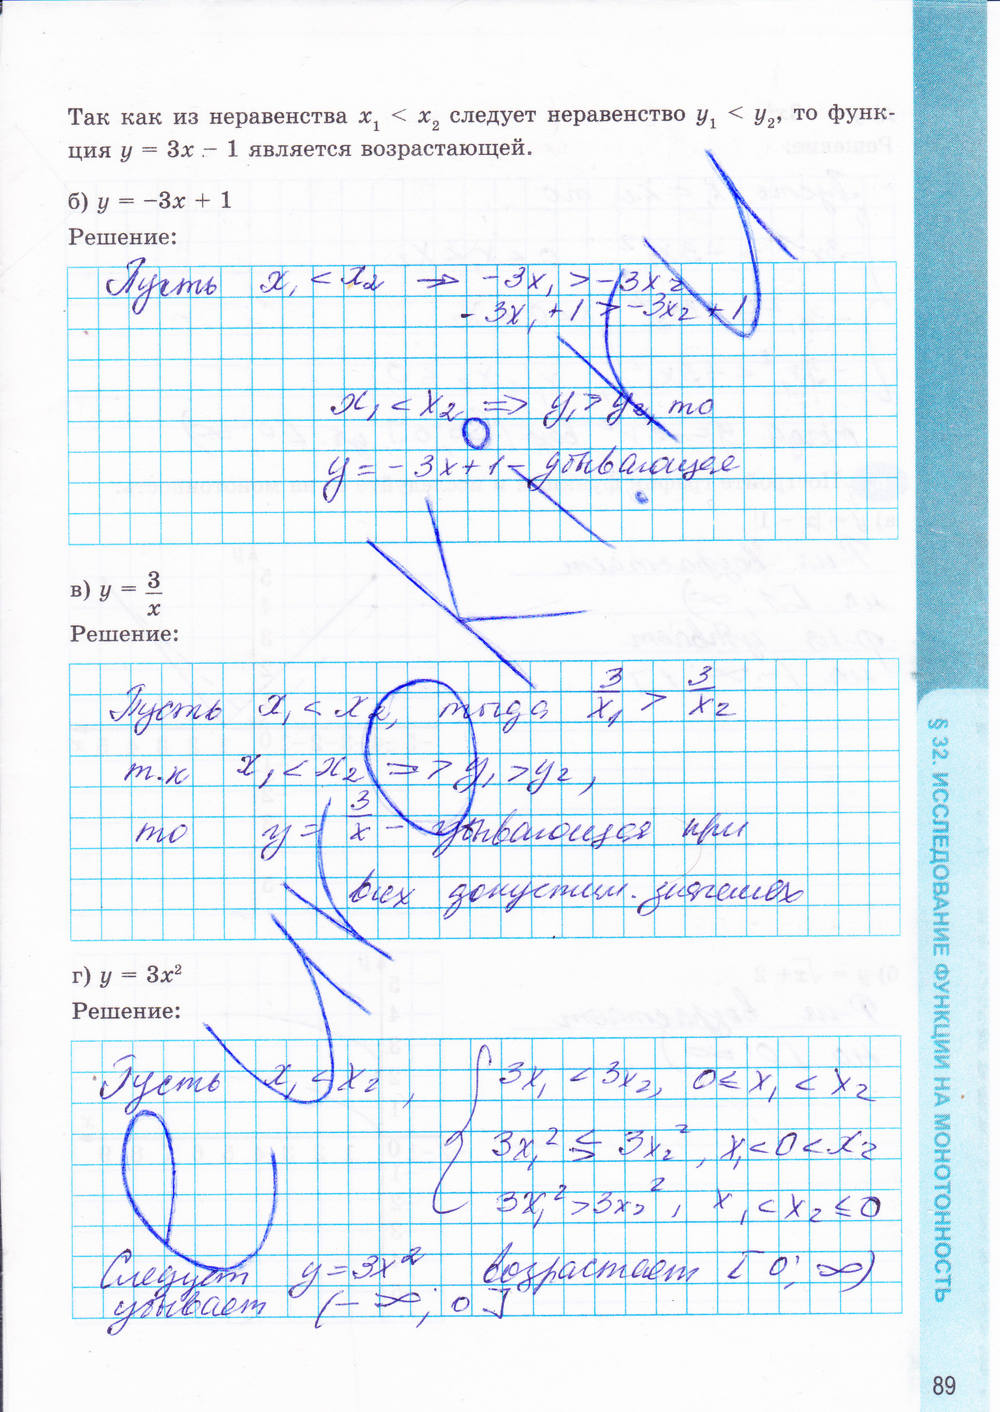 Так как из неравенства x₁ < x₂ следует неравенство y₁ < y₂, то функ-
ция y = 3x – 1 является возрастающей.
б) y = –3x + 1
Решение:
Пусть x₁ < x₂ ⇒ -3x₁ > -3x₂
-3x₁ + 1 > -3x₂ + 1
x₁ < x₂ ⇒ y₁ > y₂, то
y = -3x+1 - убывающая
в) y = 3/x
Решение:
Пусть x₁ < x₂, тогда 3/x₁ > 3/x₂
т.к x₁ < x₂ => y₁ > y₂,
то y = 3/x - убывающая при
всех допустим.
г) y = 3x²
Решение:
Пусть x₁ < x₂, { 3x₁ < 3x₂, 0 ≤ x₁ < x₂
3x₁² ≶ 3x₂², x₁ < 0 < x₂
3x₁² > 3x₂², x₁ < x₂ ≤ 0
Следует y = 3x² возрастает [0; ∞)
убывает (-∞; 0]
§ 32. ИССЛЕДОВАНИЕ ФУНКЦИИ НА МОНОТОННОСТЬ
89